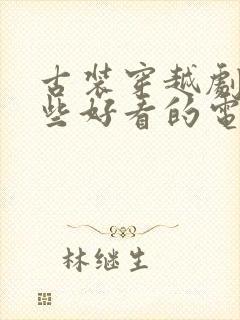 古装穿越劇
些好看的電
林继生